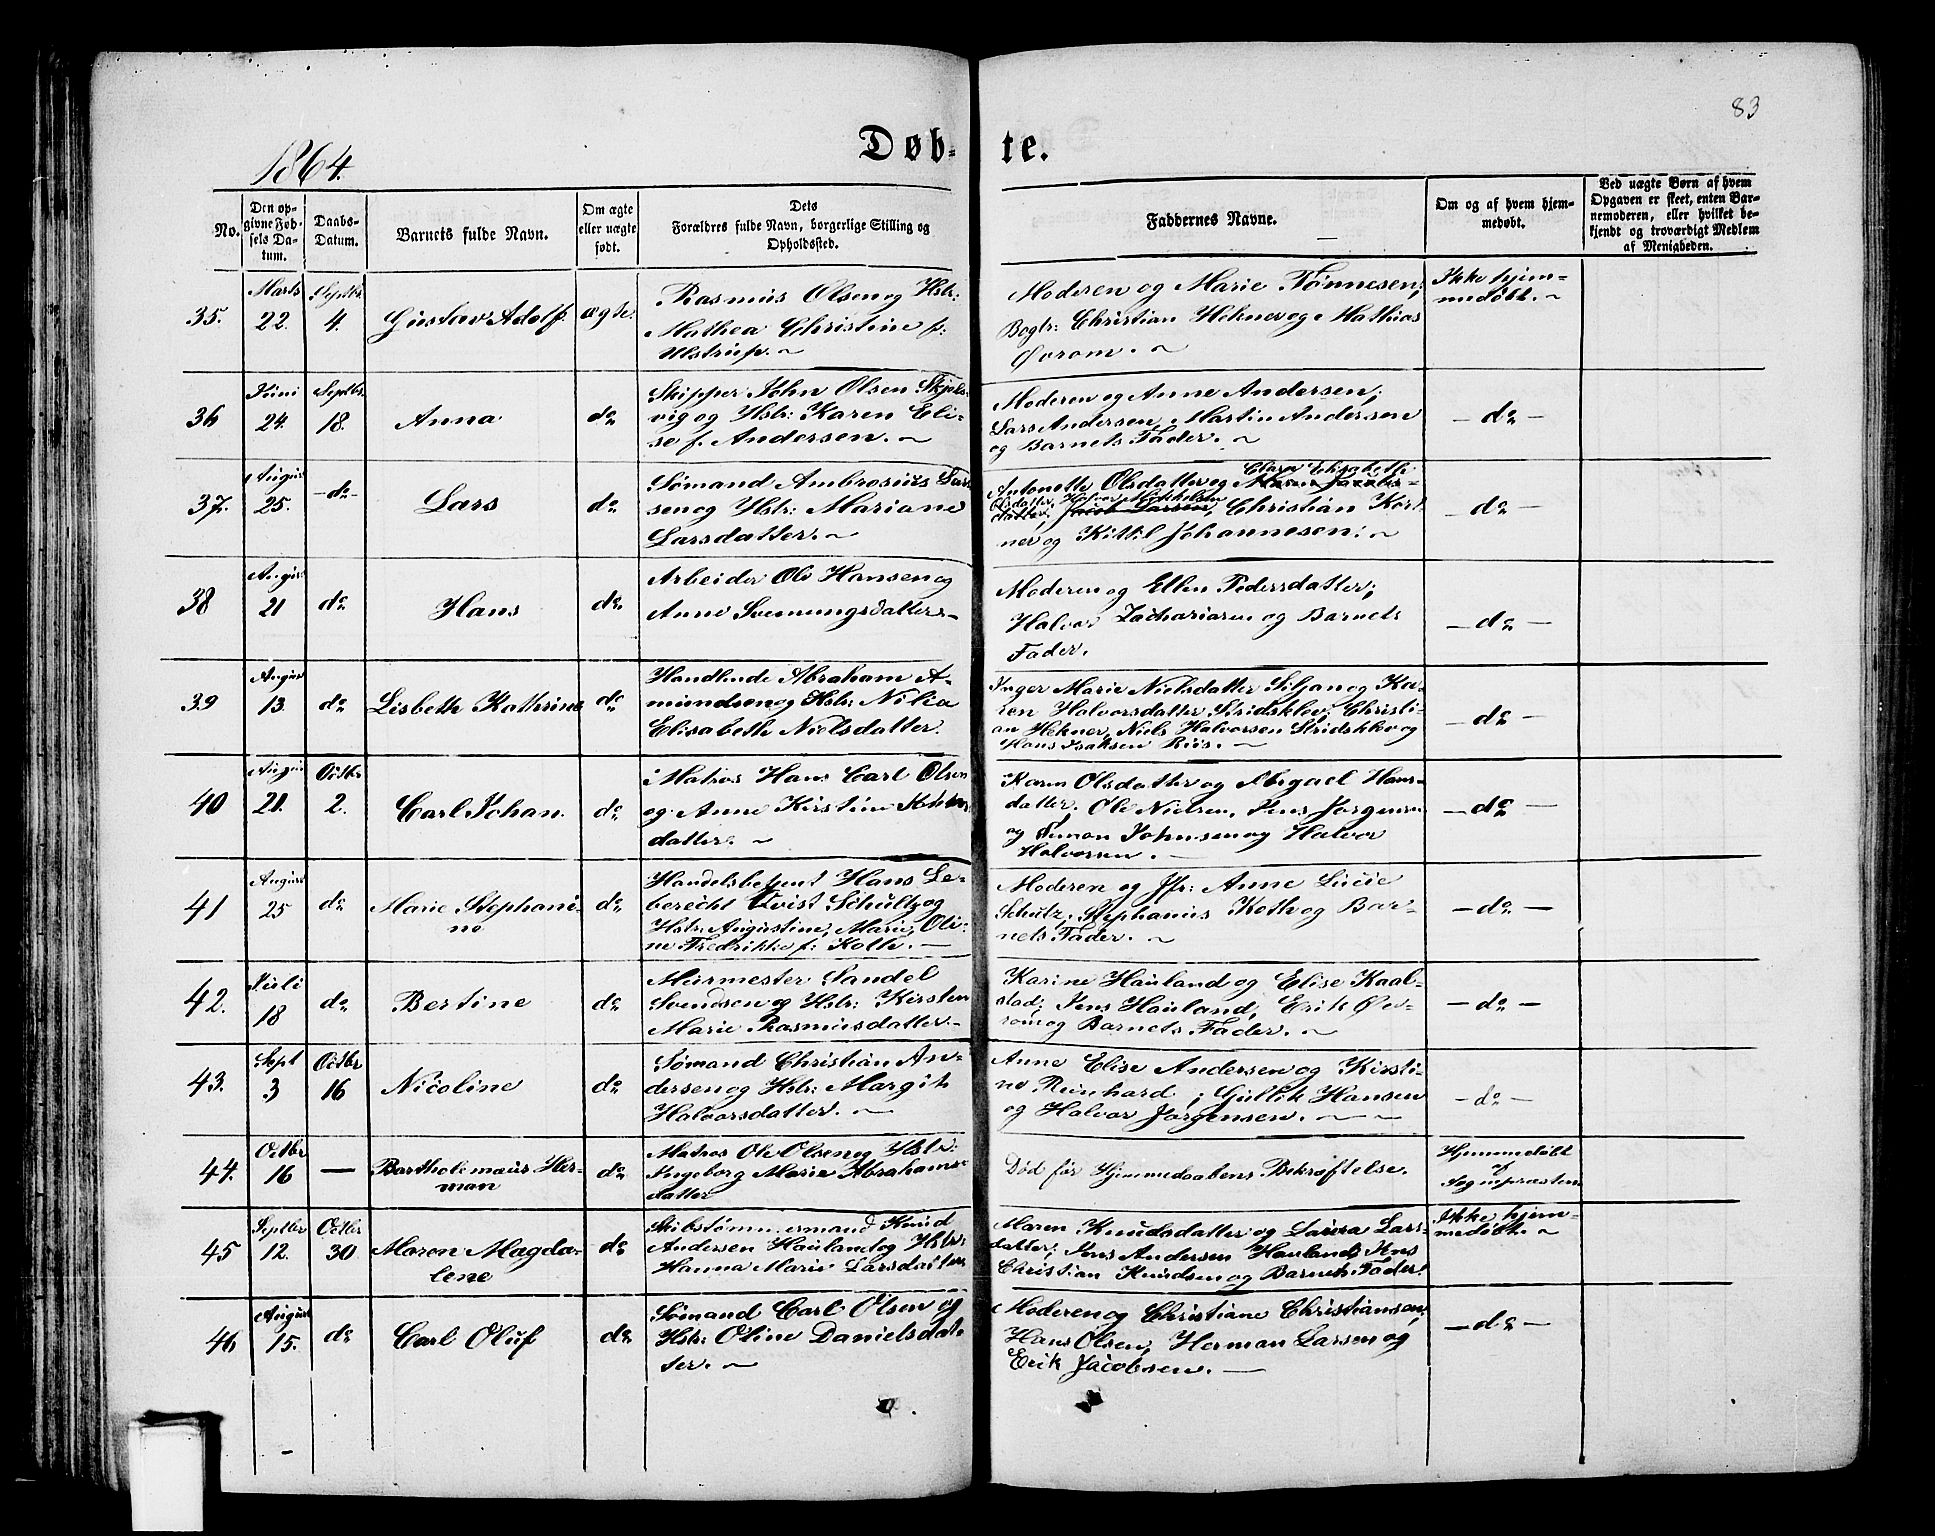 83
1864.
Døb- te.
No.
Den op-
givne Fød-
sels Da-
tum.
Daabs-
Datum.
Barnets fulde Navn.
Om ægte
eller uægte
født.
Dets
Forældres fulde Navn, borgerlige Stilling og
Opholdssted.
Faddernes Navne.
Om og af hvem hjem-
medøbt.
Ved uægte Børn af hvem
Opgaven er skeet, enten Bar-
nemoderen, eller hvilket be-
kjendt og troværdigt Medlem
af Menigheden.
35.
Marts
22.
Septbr
4.
Gustav Adolf.
ægte.
Rasmus Olsen og Hstr:
Mathea Christine f:
Ulstrup. ~
Moderen og Marie Tønnesen;
Bogtr: Christian Hekner og Mathias
Øvrom. ~
Ikke hjem-
medøbt. ~
36
Juni
24.
Septbr.
18.
Anna
do
Skipper John Olsen Skjels-
vig og Hstr: Karen Eli-
se f. Andersen. ~
Moderen og Anne Andersen;
Lars Andersen, Martin Andersen
og Barnets Fader. ~
- do -
37.
August
25.
- do -
Lars
do
Sømand Ambrosius Lar-
sen og Hstr: Mariane
Larsdatter. ~
Clara Elisabeth
Antonette Olsdatter og Maren Jacobs-
Olsdatter; Halvor Mikkelsen
datter; Jacob Larsen, Christian Kort-
ner og Kittil Johannesen. ~
- do -
38
August
21
do
Hans
do
Arbeider Ole Hansen og
Anne Svennungsdatter. -
Moderen og Ellen Pedersdatter;
Halvor Zachariasen og Barnets
Fader.
- do -
39
August
13.
do
Lisbeth Kathrine
do
Handlende Abraham A-
mundsen og Hstr: Nilia
Elisabeth Nielsdatter.
Inger Marie Nielsdatter Siljan og Ka-
ren Halvorsdatter Stridsklev; Christi-
an Hekner, Niels Halvorsen Stridsklev og
Hans Isaksen Riis. ~
- do -
40
August
21.
Octbr
2.
Carl Johan.
do
Matros Hans Carl Olsen
og Anne Kirstine
datter. ~
Karen Olsdatter og Abigael Hans-
datter; Ole Nielsen, Jens Jørgensen
og Simon Johnsen og Halvor
Halvorsen. -
- do -
41
August
25
do
Marie Stephani-
ne
do
Handelsbetjent Hans Le-
berecht Qvist Schultz og
Hstr: Augustine, Marie, Oli-
ne Fredrikke f: Kolth. -
Moderen og Jfr: Anne Lucie
Schutz; Stephanus Koth og Bar-
nets Fader. ~
- do -
42.
Juli
18
do
Bertine
do
Murmester Sandel
Svendsen og Hstr: Kirsten
Marie Rasmusdatter. -
Karine Hauland og Elise Kaal-
stad; Jens Hauland, Erik Øv-
rom og Barnets Fader. ~
- do -
43.
Sept
3
Octbr
16
Nicoline
do
Sømand Christian An-
dersen og Hstr: Margith
Halvorsdatter. ~
Anne Elise Andersen og Kirsti-
ne Reinhard; Gullik Hansen
og Halvor Jørgensen. ~
- do -
44.
Octbr
16
—
Bartholemæus Her-
man
do
Matros Ole Olsen og Hstr:
Ingeborg Marie Abrahams-
datter
Død før Hjemmedaabens Bekræftelse.
Hjemmedøbt
af
Sognepræsten.
45
Septbr
12.
Octbr
30
Maren Magda-
lene
do
Skibstømmermand Knud
Andersen Hauland og Hstr:
Hanna Marie Larsdatter
Maren Knudsdatter og Laura Lars-
datter; Jens Andersen Hauland, Jens
Christian Knudsen og Barnets Fader.
Ikke hjem-
medøbt. ~
46
August
15.
do
Carl Oluf
do
Sømand Carl Olsen og
Hstr: Oline Danielsdat-
ter. ~
Moderen og Christiane Christiansen;
Hans Olsen, Herman Larsen og
Erik Jacobsen. -
- do -